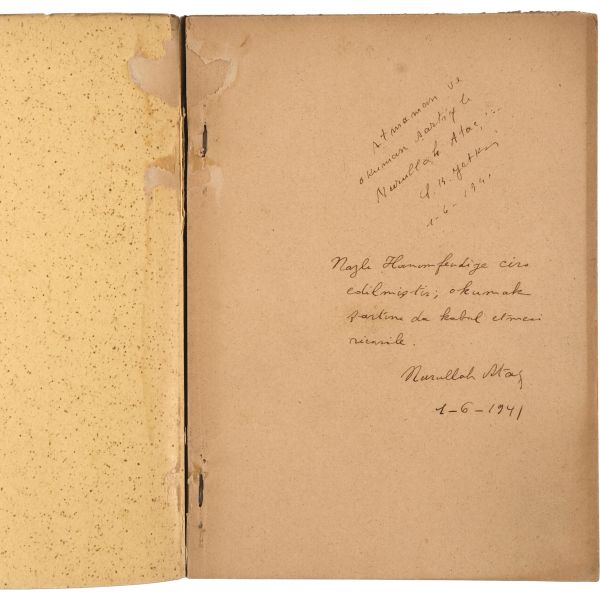 Atmaman ve
okuman şartiyle
Nurullah Ataç'a
S. K. Yetkin
1-6-1941
Nazlı Hanımefendiye ciro
edilmiştir; okumak
şartını da kabul etmesi
ricasile.
Nurullah Ataç
1-6-1941